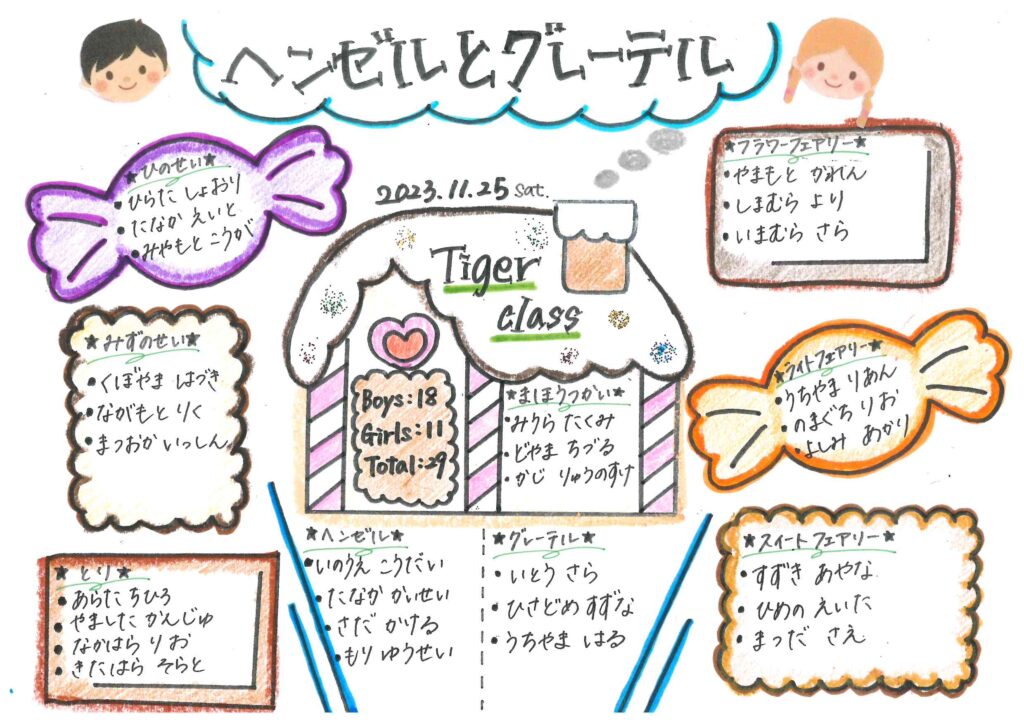 ヘンゼルとグレーテル
2023.11.25 sat.
Tiger
class
Boys:18
Girls:11
Total:29
★ひのせい★
・ひらた しょおり
・たなか えいと
・みやもと こうが
★フラワーフェアリー★
・やまもと かれん
・しまむら より
・いまむら さら
★みずのせい★
・くぼやま はづき
・ながもと りく
・まつおか いっしん
★まほうつかい★
・みうら たくみ
・じやま ちづる
・かじ りゅうのすけ
★ライトフェアリー★
・うちやま りあん
・のまぐち りお
・よしみ あかり
★とり★
・あらた ちひろ
・やました かんじゅ
・なかはら りお
・きたはら そらと
★ヘンゼル★
・いのうえ こうだい
・たなか かいせい
・さだ かける
・もり ゆうせい
★グレーテル★
・いとう さら
・ひさどめ すずな
・うちやま はる
★スイートフェアリー★
・すずき あやな
・ひめの えいた
・まつだ さえ